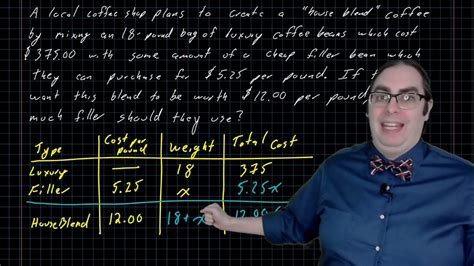 A local coffee shop plans to create a "house blend" coffee
by mixing an 18-pound bag of luxury coffee beans which cost
$375.00 with some amount of a cheap filler bean which
they can purchase for $5.25 per pound. If t
want this blend to be worth $12.00 per poun
much filler should they use?
Type Cost per pound Weight Total Cost
Luxury — 18 375
Filler 5.25 x 5.25x
House Blend 12.00 18+x 12.00